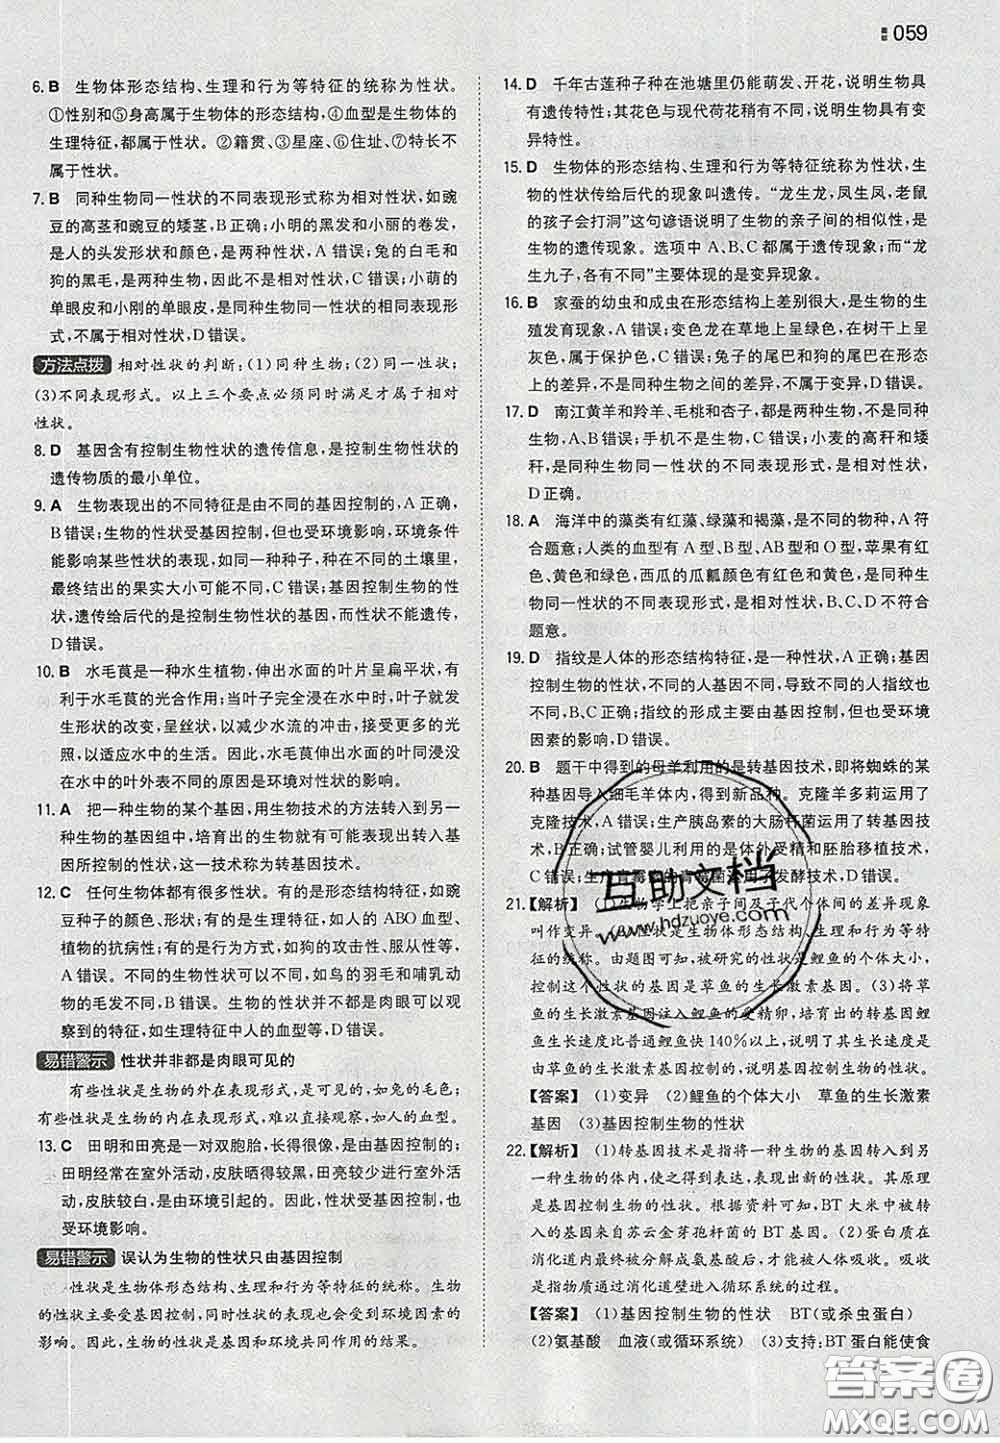 059
6. B 生物体形态结构、生理和行为等特征的统称为性状。
①性别和⑤身高属于生物体的形态结构,④血型是生物体的
生理特征,都属于性状。②籍贯、③星座、⑥住址、⑦特长不
属于性状。
7. B 同种生物同一性状的不同表现形式称为相对性状,如豌
豆的高茎和豌豆的矮茎,B正确;小明的黑发和小丽的卷发,
是人的头发形状和颜色,是两种性状,A错误;兔的白毛和
狗的黑毛,是两种生物,因此不是相对性状,C错误;小萌的
单眼皮和小刚的单眼皮,是同种生物同一性状的相同表现形
式,不属于相对性状,D错误。
方法点拨 相对性状的判断:(1)同种生物;(2)同一性状;
(3)不同表现形式。以上三个要点必须同时满足才属于相对
性状。
8. D 基因含有控制生物性状的遗传信息,是控制生物性状的
遗传物质的最小单位。
9. A 生物表现出的不同特征是由不同的基因控制的,A正确,
B错误;生物的性状受基因控制,但也受环境影响,环境条件
能影响某些性状的表现,如同一种种子,种在不同的土壤里,
最终结出的果实大小可能不同,C错误;基因控制生物的性
状,遗传给后代的是控制生物性状的基因,而性状不能遗传,
D错误。
10. B 水毛茛是一种水生植物,伸出水面的叶片呈扁平状,有
利于水毛茛的光合作用;当叶子完全浸在水中时,叶子就发
生形状的改变,呈丝状,以减少水流的冲击,接受更多的光
照,以适应水中的生活。因此,水毛茛伸出水面的叶同浸在
水中的叶外表不同的原因是环境对性状的影响。
11. A 把一种生物的某个基因,用生物技术的方法转入到另一
种生物的基因组中,培育出的生物就有可能表现出转入基
因所控制的性状,这一技术称为转基因技术。
12. C 任何生物体都有很多性状。有的是形态结构特征,如豌
豆种子的颜色、形状;有的是生理特征,如人的ABO血型、
植物的抗病性;有的是行为方式,如狗的攻击性、服从性等,
A错误。不同的生物性状可以不同,如鸟的羽毛和哺乳动
物的毛发不同,B错误。生物的性状并不都是肉眼可以观
察到的特征,如生理特征中人的血型等,D错误。
易错警示 性状并非都是肉眼可见的
有些性状是生物的外在表现形式,显而易见,如兔的毛色;
有些性状是生物的内在表现形式,难以直接观察,如人的血型。
13. C 田明和田亮是一对双胞胎,长得很像,是由基因控制的;
田明经常在室外活动,皮肤晒得较黑,田亮经常在室内活
动,皮肤较白,是由环境引起的。因此,性状受基因控制,也
受环境影响。
易错警示 误认为生物的性状只由基因控制
性状是生物体形态结构、生理和行为等特征的统称。生物
的性状主要受基因控制,同时性状的表现也会受到环境因素的
影响。因此,生物的性状是基因和环境共同作用的结果。
14. D 千年古莲种子种在池塘里仍能萌发、开花,说明生物具
有遗传特性;其花色与现代荷花稍有不同,说明生物具有变
异特性。
15. D 生物体的形态结构、生理和行为等特征统称为性状,生
物的性状传给后代的现象叫遗传。“龙生龙,凤生凤,老鼠
的孩子会打洞”这句谚语说明了生物的亲子间的相似性,是
生物的遗传现象。选项中A、B、C都属于遗传现象;而“龙
生九子,各有不同”主要体现的是变异现象。
16. B 家蚕的幼虫和成虫在形态结构上差别很大,是生物的生
殖发育现象,A错误;变色龙在草地上呈绿色,在树干上呈
灰色,属于保护色,C错误;兔子的尾巴和狗的尾巴在形态
上的差异,不是同种生物之间的差异,不是变异,D错误。
17. D 南江黄羊和羚羊、毛桃和杏子,都是两种生物,不是同种
生物,A、B错误;手机不是生物,C错误;小麦的高秆和矮
秆,是同种生物同一性状的不同表现形式,是相对性状,
D正确。
18. A 海洋中的藻类有红藻、绿藻和褐藻,是不同的物种,A符
合题意;人类的血型有A型、B型、AB型和O型,果蝇的眼
色有红色和褐色,西瓜的瓜瓤颜色有黄色和红色,是同种生
物同一性状的不同表现形式,是相对性状,B、C、D不符合
题意。
19. D 指纹是人体的形态结构特征,是一种性状,A正确;基因
控制生物的性状,不同的人基因不同,导致不同的人指纹也
不同,B、C正确;指纹的形成主要由基因控制,也受环境
因素的影响,D错误。
20. B 题干中得到的母羊利用的是转基因技术,即将蜘蛛的某
种基因导入细毛羊体内,得到新品种。克隆羊多莉运用了
克隆技术,A错误;生产胰岛素的大肠杆菌运用了转基因技
术,B正确;试管婴儿利用的是体外受精和胚胎移植技术,
C错误;生产青霉素的青霉菌运用了发酵技术,D错误。
21. 【解析】 (1)生物学上把亲子间及子代个体间的差异现象
叫作变异。(2)性状是生物体形态结构、生理和行为等特
征的统称。由题图可知,被研究的性状是鲤鱼的个体大小,
控制这个性状的基因是草鱼的生长激素基因。(3)将草鱼
的生长激素基因注入鲤鱼的受精卵,培育出的转基因鲤鱼
的生长速度比普通鲤鱼快140%以上,说明生物的性状是
由基因控制的,草鱼的生长激素基因控制鱼的生长性状。
【答案】 (1)变异 (2)鲤鱼的个体大小 草鱼的生长激素
基因 (3)基因控制生物的性状
22. 【解析】 (1)转基因技术是指将一种生物的基因转入到另
一种生物的基因组内,表现出新的性状的技术。其原理
是基因控制生物的性状。根据资料可知,BT大米中被转
入的基因来自苏云金芽孢杆菌的BT基因。(2)蛋白质在
消化道内最终被分解成氨基酸后,才能被人体吸收。吸收
是营养物质通过消化道壁进入循环系统的过程。
【答案】 (1)基因控制生物的性状 BT(或杀虫蛋白)
(2)氨基酸 血液(或循环系统) (3)支持:BT蛋白能使食
互助文档
www.hdzuoye.com
答案圈
MXQE.COM